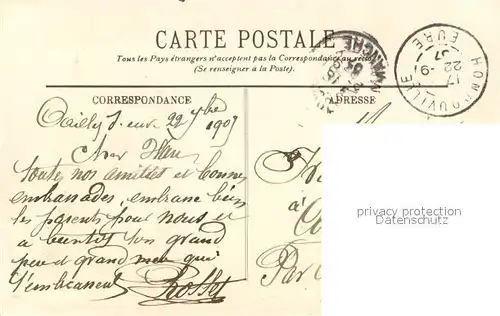 CARTE POSTALE
Tous les Pays étrangers n'acceptent pas la Correspondance au recto
(Se renseigner à la Poste).
CORRESPONDANCE
ADRESSE
MANCHE
HONDOUVILLE
17
22 -9
07
EURE
Cailly s. eure 22 7bre
1907
Cher
toute nos amitiés et bonnes
embrassades, embrasse bien
les parents pour nous et
a bientôt ton grand
père et grand mère qui
t'embrassent
à
Par
privacy protection
Datenschutz